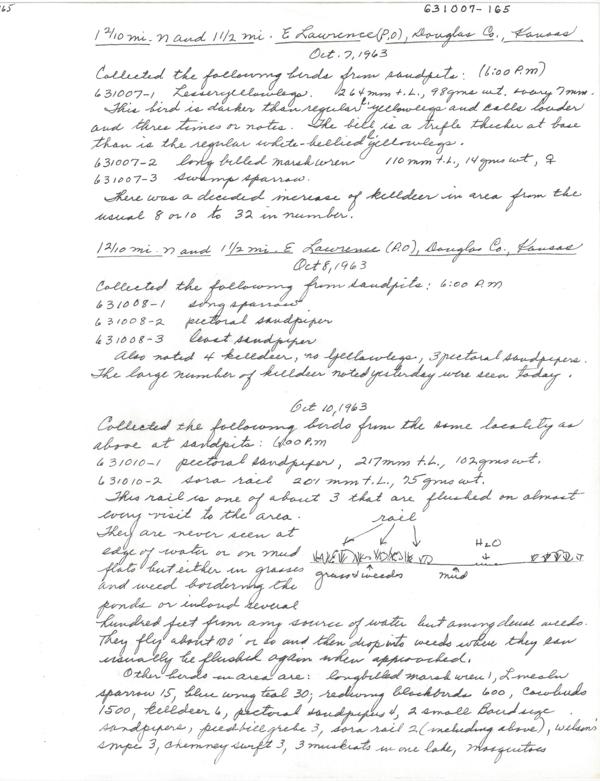 65
631007-165
1 2/10 mi. N and 1 1/2 mi. E Lawrence (P.O), Douglas Co., Kansas
Oct. 7, 1963
Collected the following birds from sandpits: (6:00 P.M)
631007-1 Lesser yellowlegs. 264 mm t.L., 98 gms wt. ovary 7mm.
This bird is darker than regular yellowlegs and calls louder
and three times or notes. The bill is a trifle thicker at base
than is the regular white-bellied yellowlegs.
631007-2 long billed marsh wren 110 mm t.L., 14 gms wt, ♀
631007-3 swamp sparrow.
There was a decided increase of killdeer in area from the
usual 8 or 10 to 32 in number.
1 2/10 mi. N and 1 1/2 mi. E Lawrense (P.O), Douglas Co., Kansas
Oct 8, 1963
Collected the following from sandpits: 6:00 P.M
631008-1 song sparrow
631008-2 pectoral sandpiper
631008-3 least sandpiper
Also noted 4 killdeer, no yellowlegs, 3 pectoral sandpipers.
The large number of killdeer noted yesterday were seen today.
Oct 10, 1963
Collected the following birds from the same locality as
above at sandpits: 6:00 P.M
631010-1 pectoral sandpiper, 217 mm t.L., 102 gms wt.
631010-2 sora rail 201 mm t.L., 75 gms wt.
This rail is one of about 3 that are flushed on almost
every visit to the area.
rail
They are never seen at
edge of water or on mud
H2O
flats but either in grasses
grass & weeds mud
and weed bordering the
ponds or inland several
hundred feet from any source of water but among dense weeds.
They fly about 100' or so and then drop into weeds where they can
usually be flushed again when approached.
Other birds in area are: longbilled marsh wren 1, Lincoln
sparrow 15, blue wing teal 30; redwing blackbirds 600, Cowbirds
1500, killdeer 6, pectoral sandpipers 4, 2 small Baird size
sandpipers, piedbill grebe 3, sora rail 2 (including above), Wilson's
snipe 3, chimney swift 3, 3 muskrats in one lake, mosquitoes